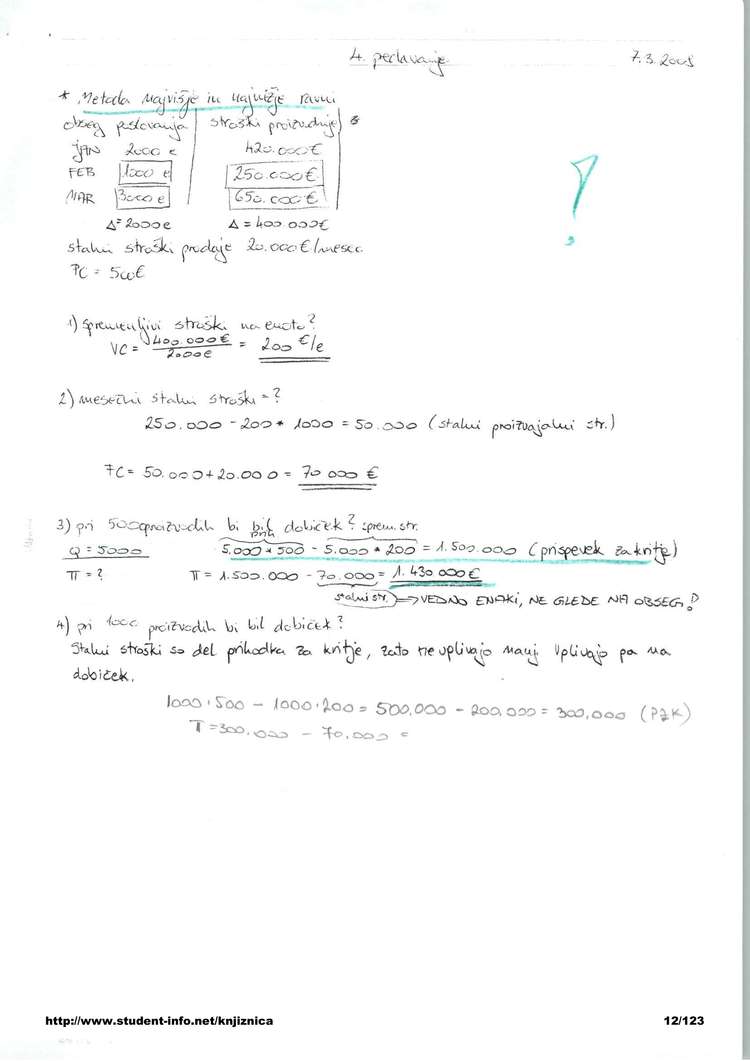 4. predavanje 7.3.2008
* Metoda najvišje in najnižje ravni
obseg poslovanja stroški proizvodnje
JAN 2000 e 420.000 €
FEB 1000 e 250.000 €
MAR 3000 e 650.000 €
Δ = 2000 e Δ = 400.000 €
stalni stroški prodaje 20.000 €/mesec
PC = 500 €
1) spremenljivi stroški na enoto?
VC = 400 000 € / 2000 e = 200 €/e
2) mesečni stalni stroški = ?
250.000 - 200 * 1000 = 50.000 (stalni proizvajalni str.)
FC = 50.000 + 20.000 = 70 000 €
3) pri 5000 proizvodih bi bil dobiček? sprem. str.
prih
Q = 5000 5.000 * 500 - 5.000 * 200 = 1.500.000 (prispevek za kritje)
π = ? π = 1.500.000 - 70.000 = 1.430 000 €
stalni str. ⇒ VEDNO ENAKI, NE GLEDE NA OBSEG!
4) pri 1000 proizvodih bi bil dobiček?
Stalni stroški so del prihodka za kritje, zato ne vplivajo nanj. Vplivajo pa na
dobiček.
1000 · 500 - 1000 · 200 = 500,000 - 200,000 = 300,000 (PZK)
π = 300.000 - 70,000 =
http://www.student-info.net/knjiznica 12/123